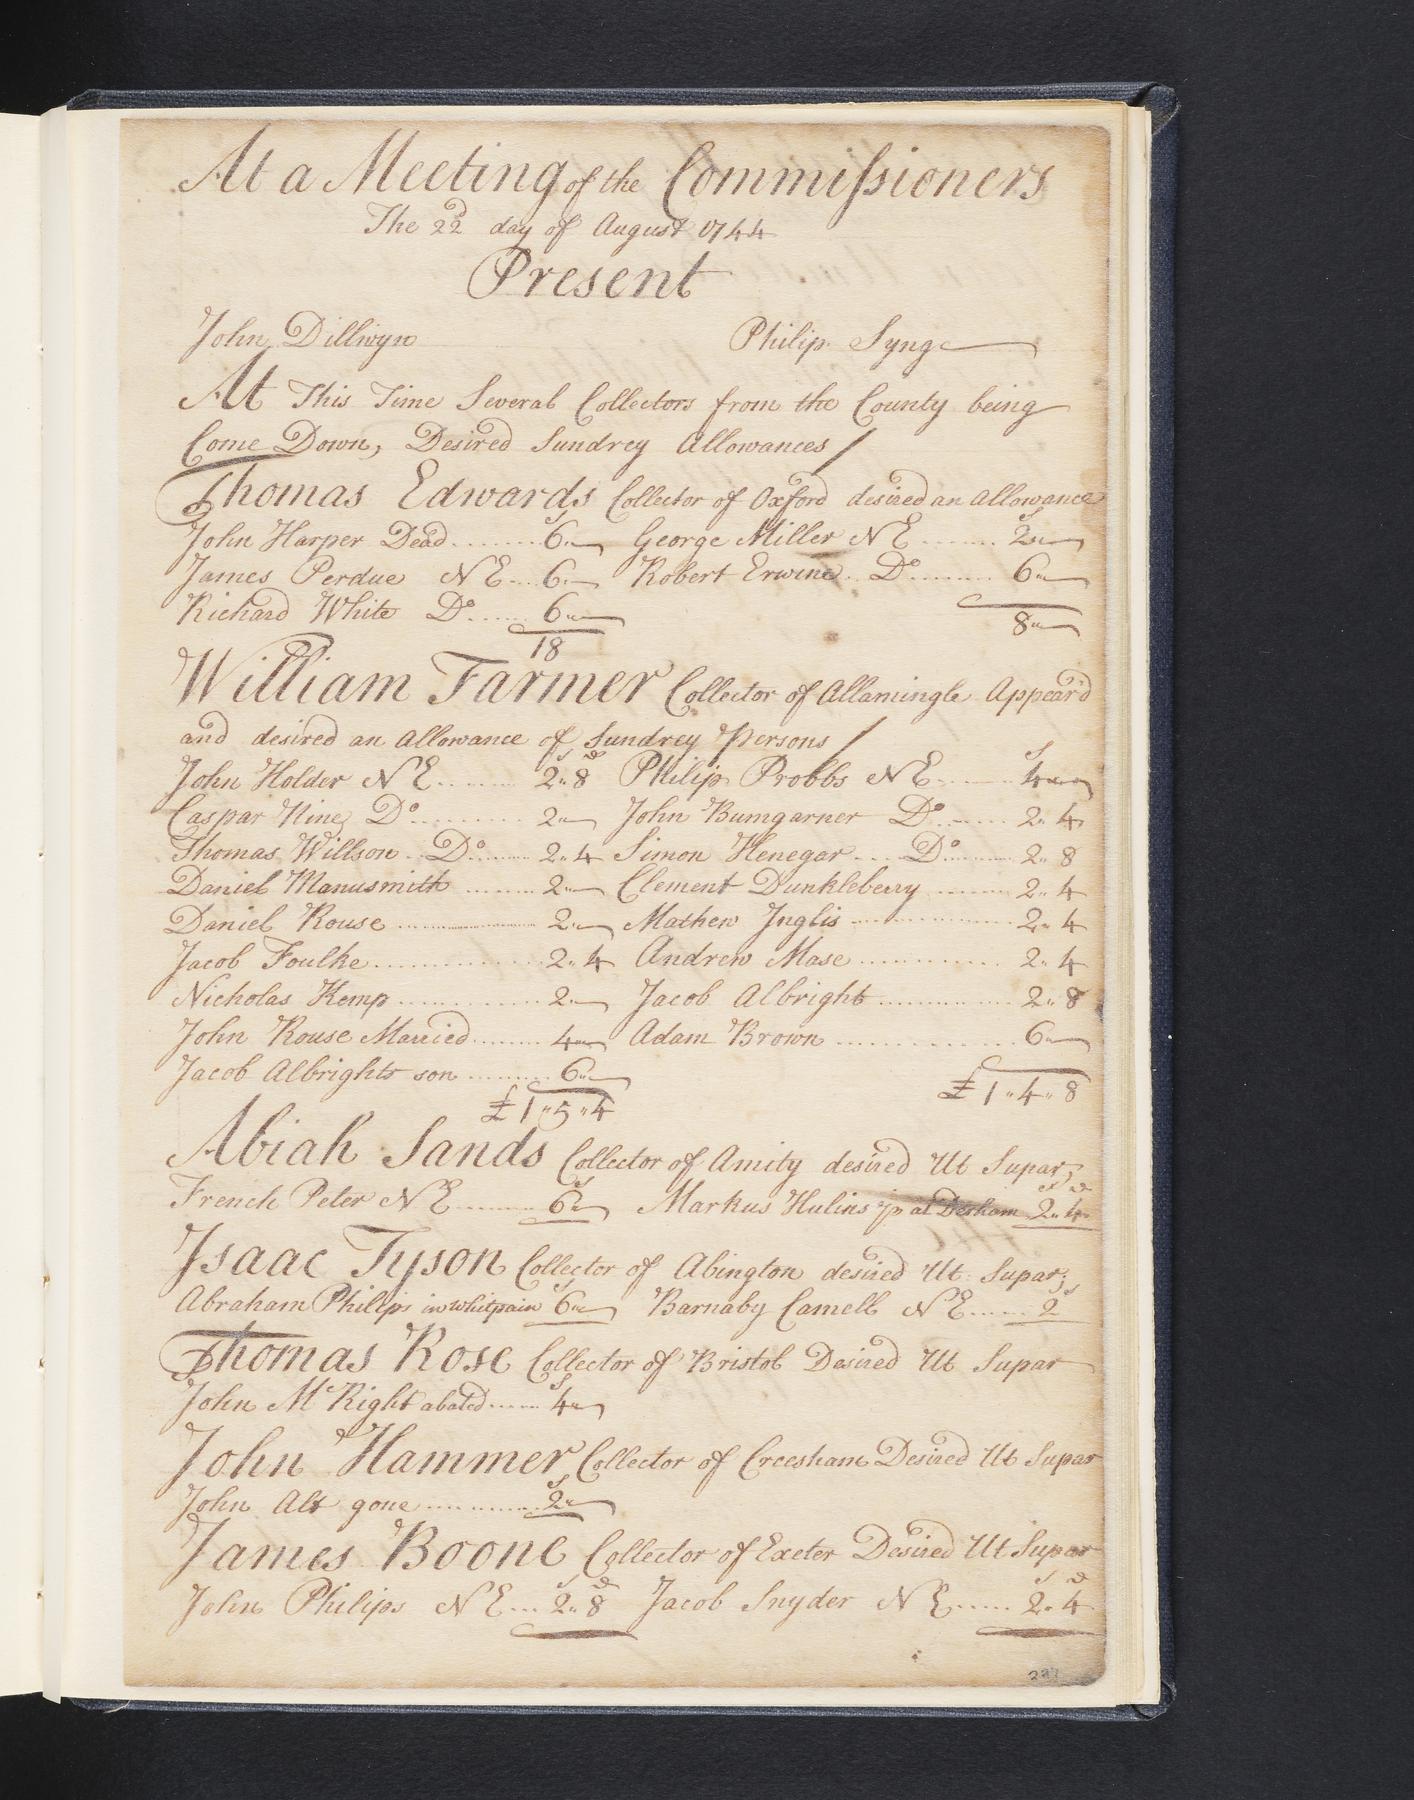 At a Meeting of the Commissioners
The 22d day of August 1744
Present
John Dillwyn Philip Synge
At This Time Several Collectors from the County being
Come Down, Desired Sundrey Allowances
Thomas Edwards Collector of Oxford desired an allowance
John Harper Dead ........ 6 s George Miller N E ....... 2 s
James Perdue N E ... 6 Robert Erwine .. Do ......... 6
Richard White Do ...... 6
18 8
William Farmer Collector of Allamingle Appear'd
and desired an allowance of Sundrey Persons
John Holder N E ........ 2 s 8 d Philip Probbs N E ........ 4 s
Caspar Nine Do ......... 2 John Bumgarner Do ...... 2 4
Thomas Willson .. Do ....... 2 4 Simon Henegar ... Do ........ 2 8
Daniel Manusmith ........ 2 Clement Dunkleberry ........ 2 4
Daniel Rouse ............... 2 Mathew Inglis ............... 2 4
Jacob Foulke ............... 2 4 Andrew Mase ............ 2 4
Nicholas Kemp ............ 2 Jacob Albright ............ 2 8
John Rouse Married ........ 4 Adam Brown ............... 6
Jacob Albrights son ......... 6
£ 1 " 5 " 4 £ 1 " 4 " 8
Abiah Sands Collector of Amity desired Ut Supar;
French Peter N E ......... 6 s Markus Hulins jr at Dersham 2 s 4 d
Isaac Tyson Collector of Abington desired Ut Supar;
Abraham Philips in whitpain 6 s Barnaby Camell N E ...... 2 s
Thomas Rose Collector of Bristol Desired Ut Supar
John McRight abated ...... 4 s
John Hammer Collector of Creesham Desired Ut Supar
John Alt gone ............ 2 s
James Boone Collector of Exeter Desired Ut Supar
John Philips N E ... 2 s 8 d Jacob Snyder N E ...... 2 s 4 d